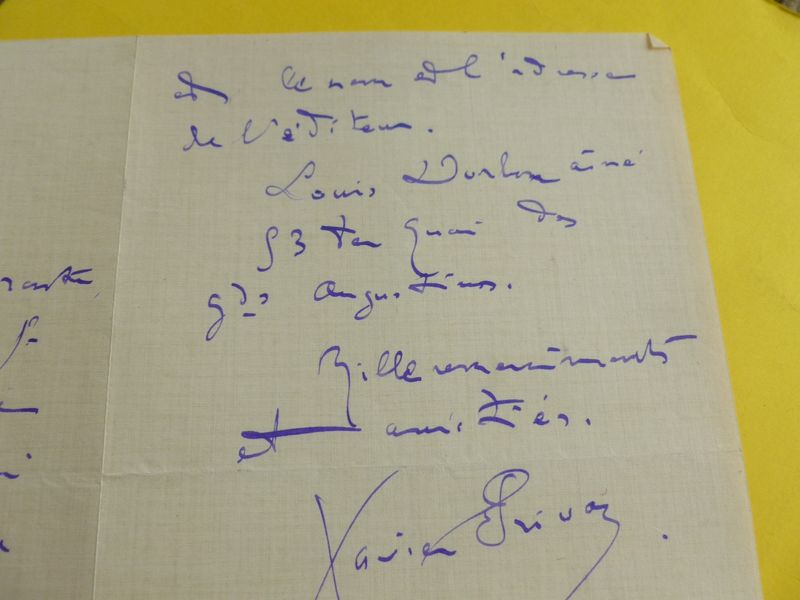 et le nom et l'adresse
de l'éditeur.
Louis Dorbon aîné
53 ter quai des
gds augustins.
Mille remerciements
et amitiés.
Xavier Privas.